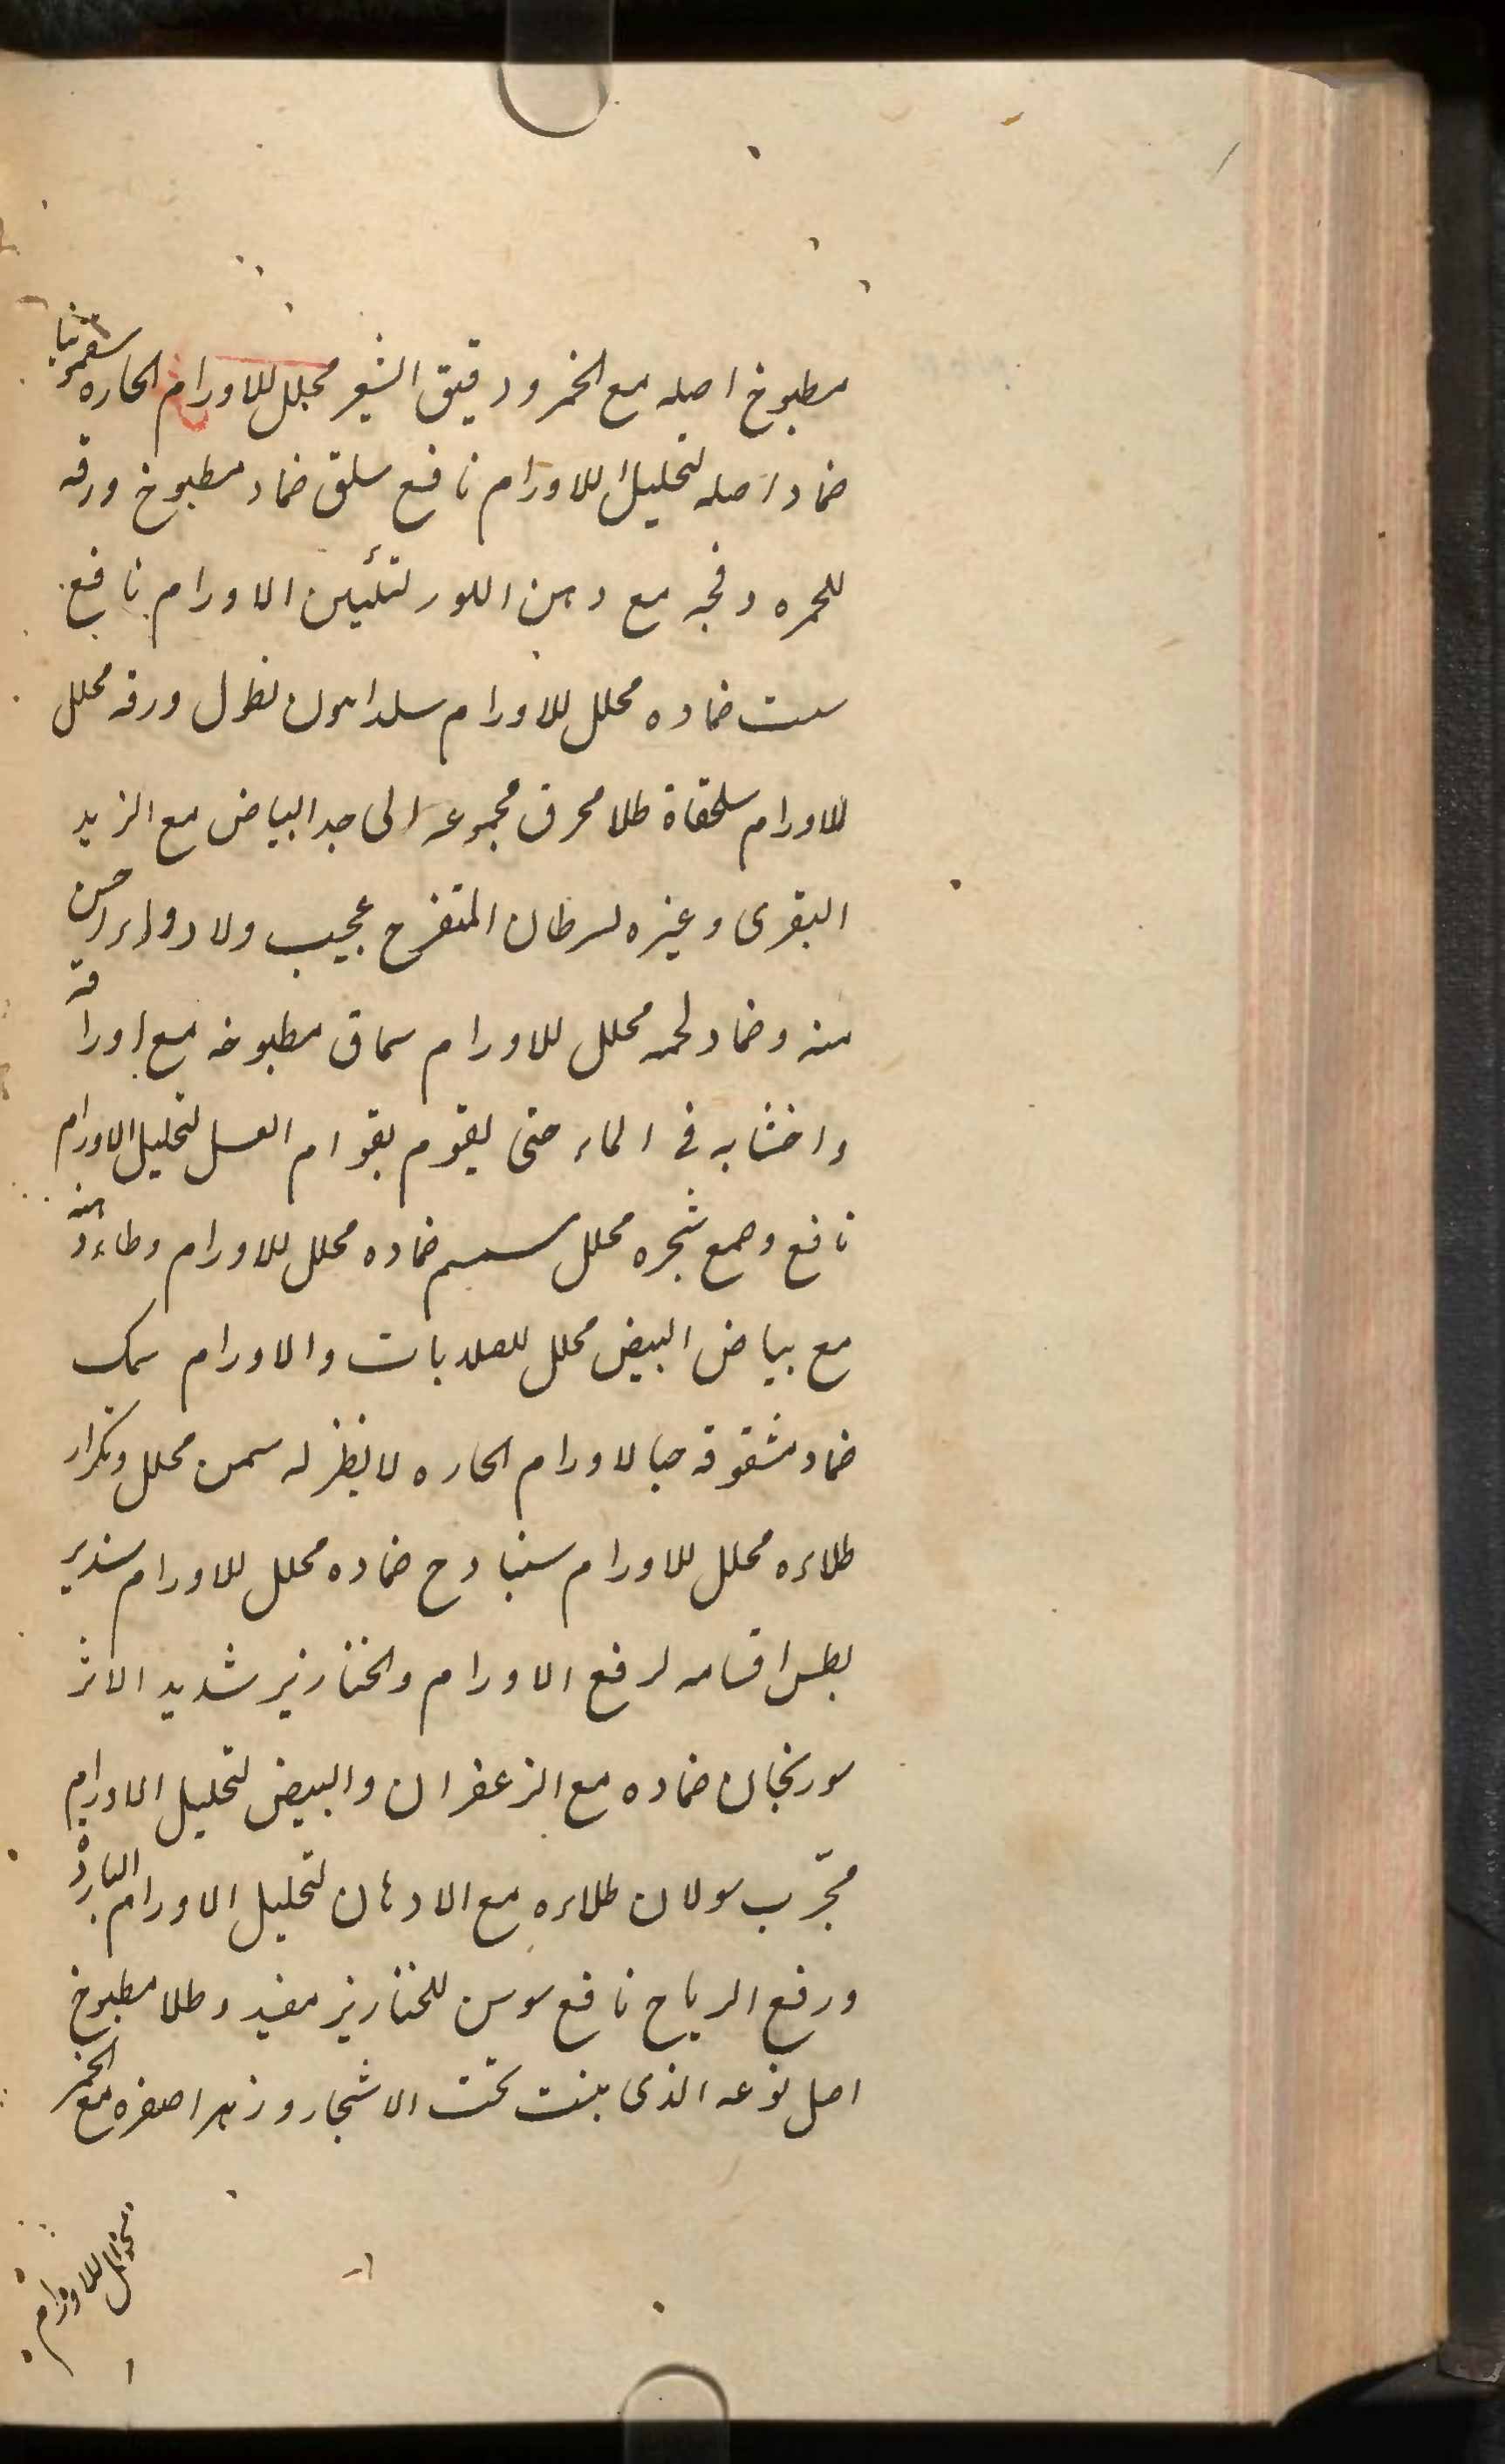 مطبوخ اصله مع الخمر ودقیق الشعیر محلل للاورام الحاره سقمونیا
ضماد اصله لتحلیل للاورام نافع سلق ضماد مطبوخ ورقه
للحمره وفجه مع دهن اللوز لتلیین الاورام نافع
ست ضماده محلل للاورام نطول ورقه محلل
للاورام سلحفاة طلا محرق مجموعه الی حد البیاض مع الزبد
البقری وغیره لسرطان المتقرح عجیب ولا دواء احسن
منه وضماد لحمه محلل للاورام سماق مطبوخه مع اوراقه
واخشابه فی الماء حتی یقوم بقوام العسل لتحلیل الاورام
نافع وصمغ شجره محلل سمسم ضماده محلل للاورام وطلاء دهنه
مع بیاض البیض محلل للصلابات والاورام سمک
ضماد مشقوقه حیا لاورام الحاره لا نظیر له سمن محلل وتکرار
طلاءه محلل للاورام سنبادج ضماده محلل للاورام
اقسامه لرفع الاورام والخنازیر شدید الاثر
سورنجان ضماده مع الزعفران والبیض لتحلیل الاورام
مجرّب سولان طلاءه مع الادهان لتحلیل الاورام الباردة
ورفع الریاح نافع سوسن للخنازیر مفید وطلا مطبوخ
اصل نوعه الذی ینبت تحت الاشجار وزهر اصفره مع الخمر
للاورام